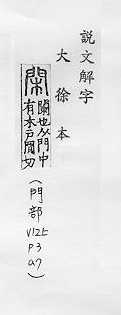 説文解字
大徐本
閑 闌也从門中
有木戸閒切
(門部
V12上
P3
a7)